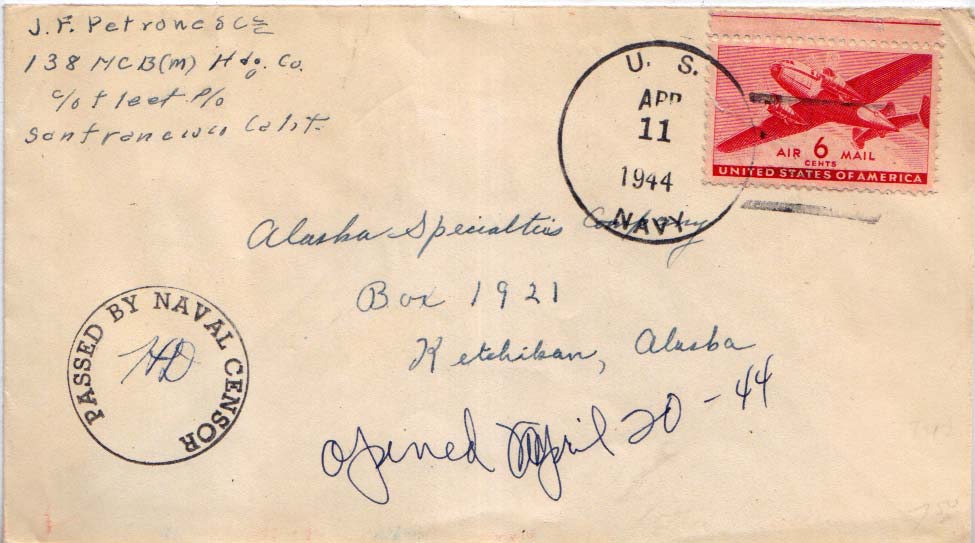 J. F. Petrone S C 2/c
138 MCB(m) Hdq. Co.
c/o Fleet P/o
Sanfrancisco Calif.
U. S.
APR
11
1944
NAVY
AIR 6 MAIL
CENTS
UNITED STATES OF AMERICA
Alaska Specialties Company
Box 1921
Ketchikan, Alaska
PASSED BY NAVAL CENSOR
opened April 20 - 44